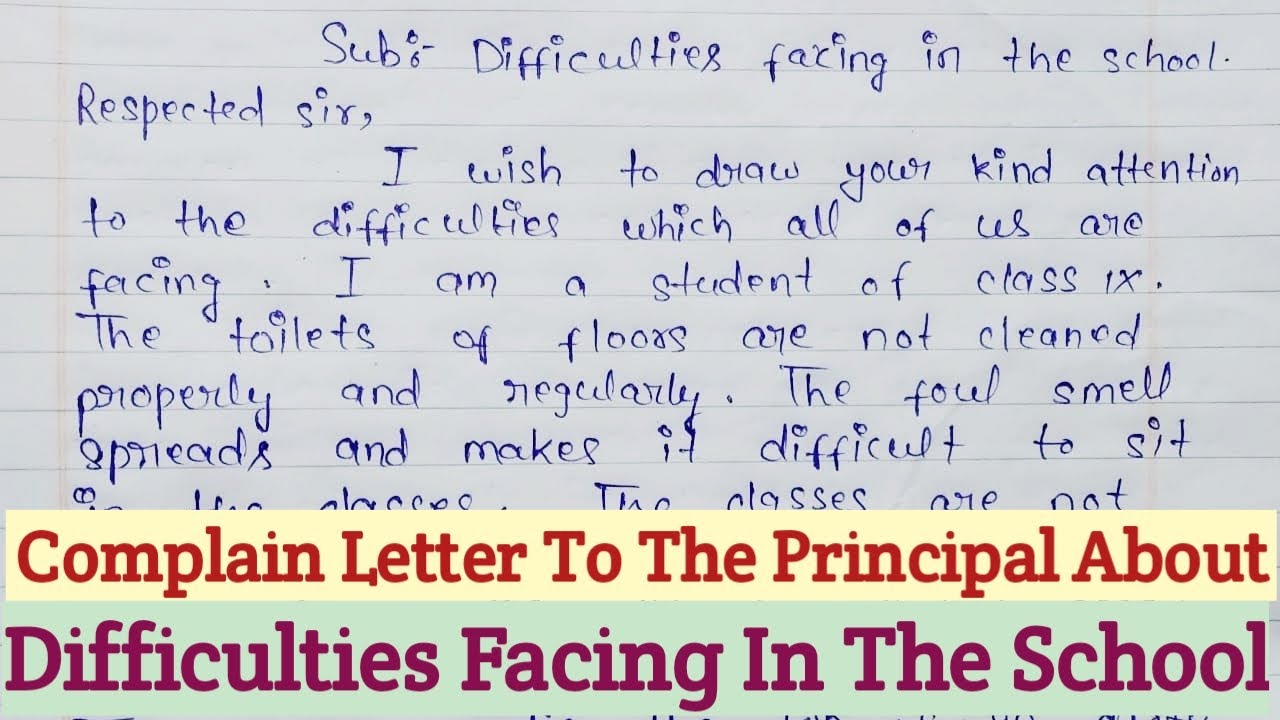 Sub:- Difficulties facing in the school.
Respected sir,
I wish to draw your kind attention
to the difficulties which all of us are
facing. I am a student of class IX.
The toilets of floors are not cleaned
properly and regularly. The foul smell
spreads and makes it difficult to sit
in the classes. The classes are not
Complain Letter To The Principal About
Difficulties Facing In The School